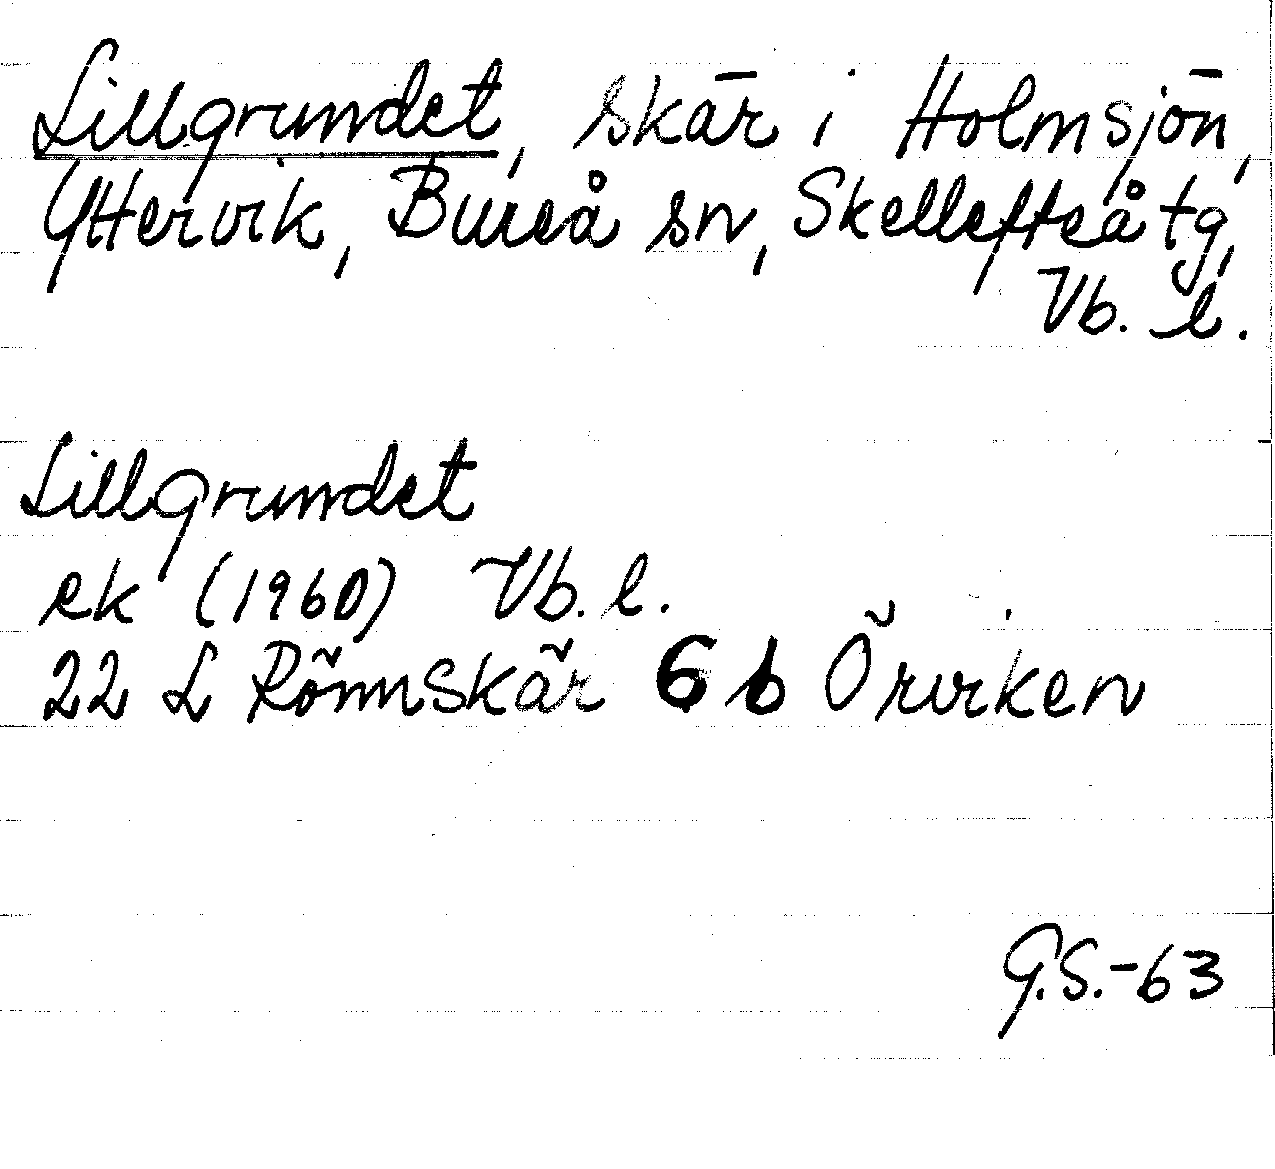 Lillgrundet, skär i Holmsjön,
Yttervik, Bureå sn, Skellefteå tg,
Vb. l.
Lillgrundet
ek (1960) Vb. l.
22 L Rönnskär 6 b Örviken
G.S.-63